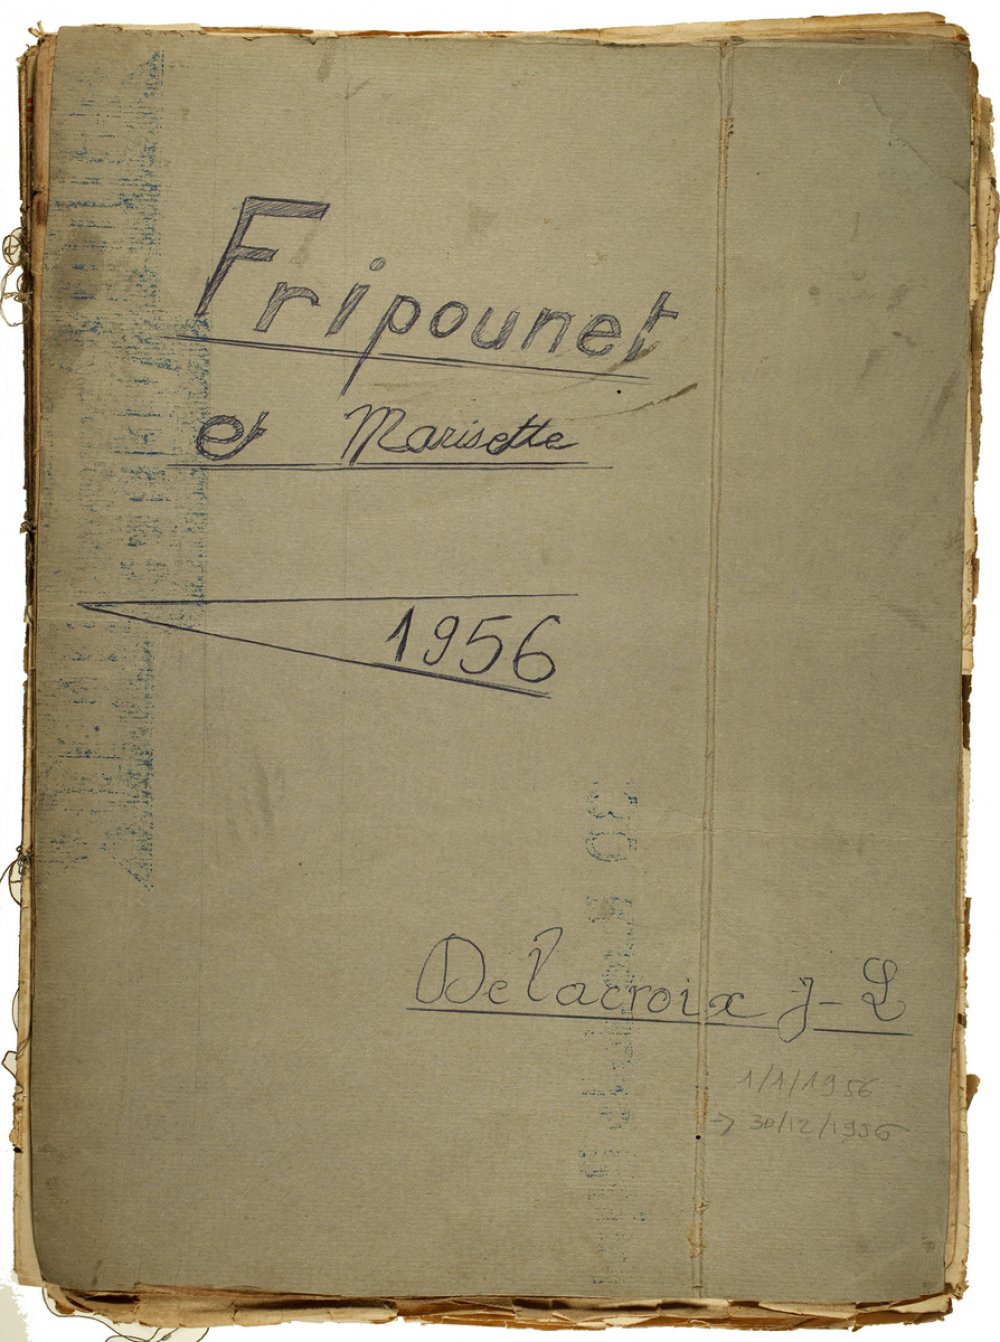 Fripounet
et Marisette
1956
30
Delacroix J-L
1/1/1956
→ 30/12/1956